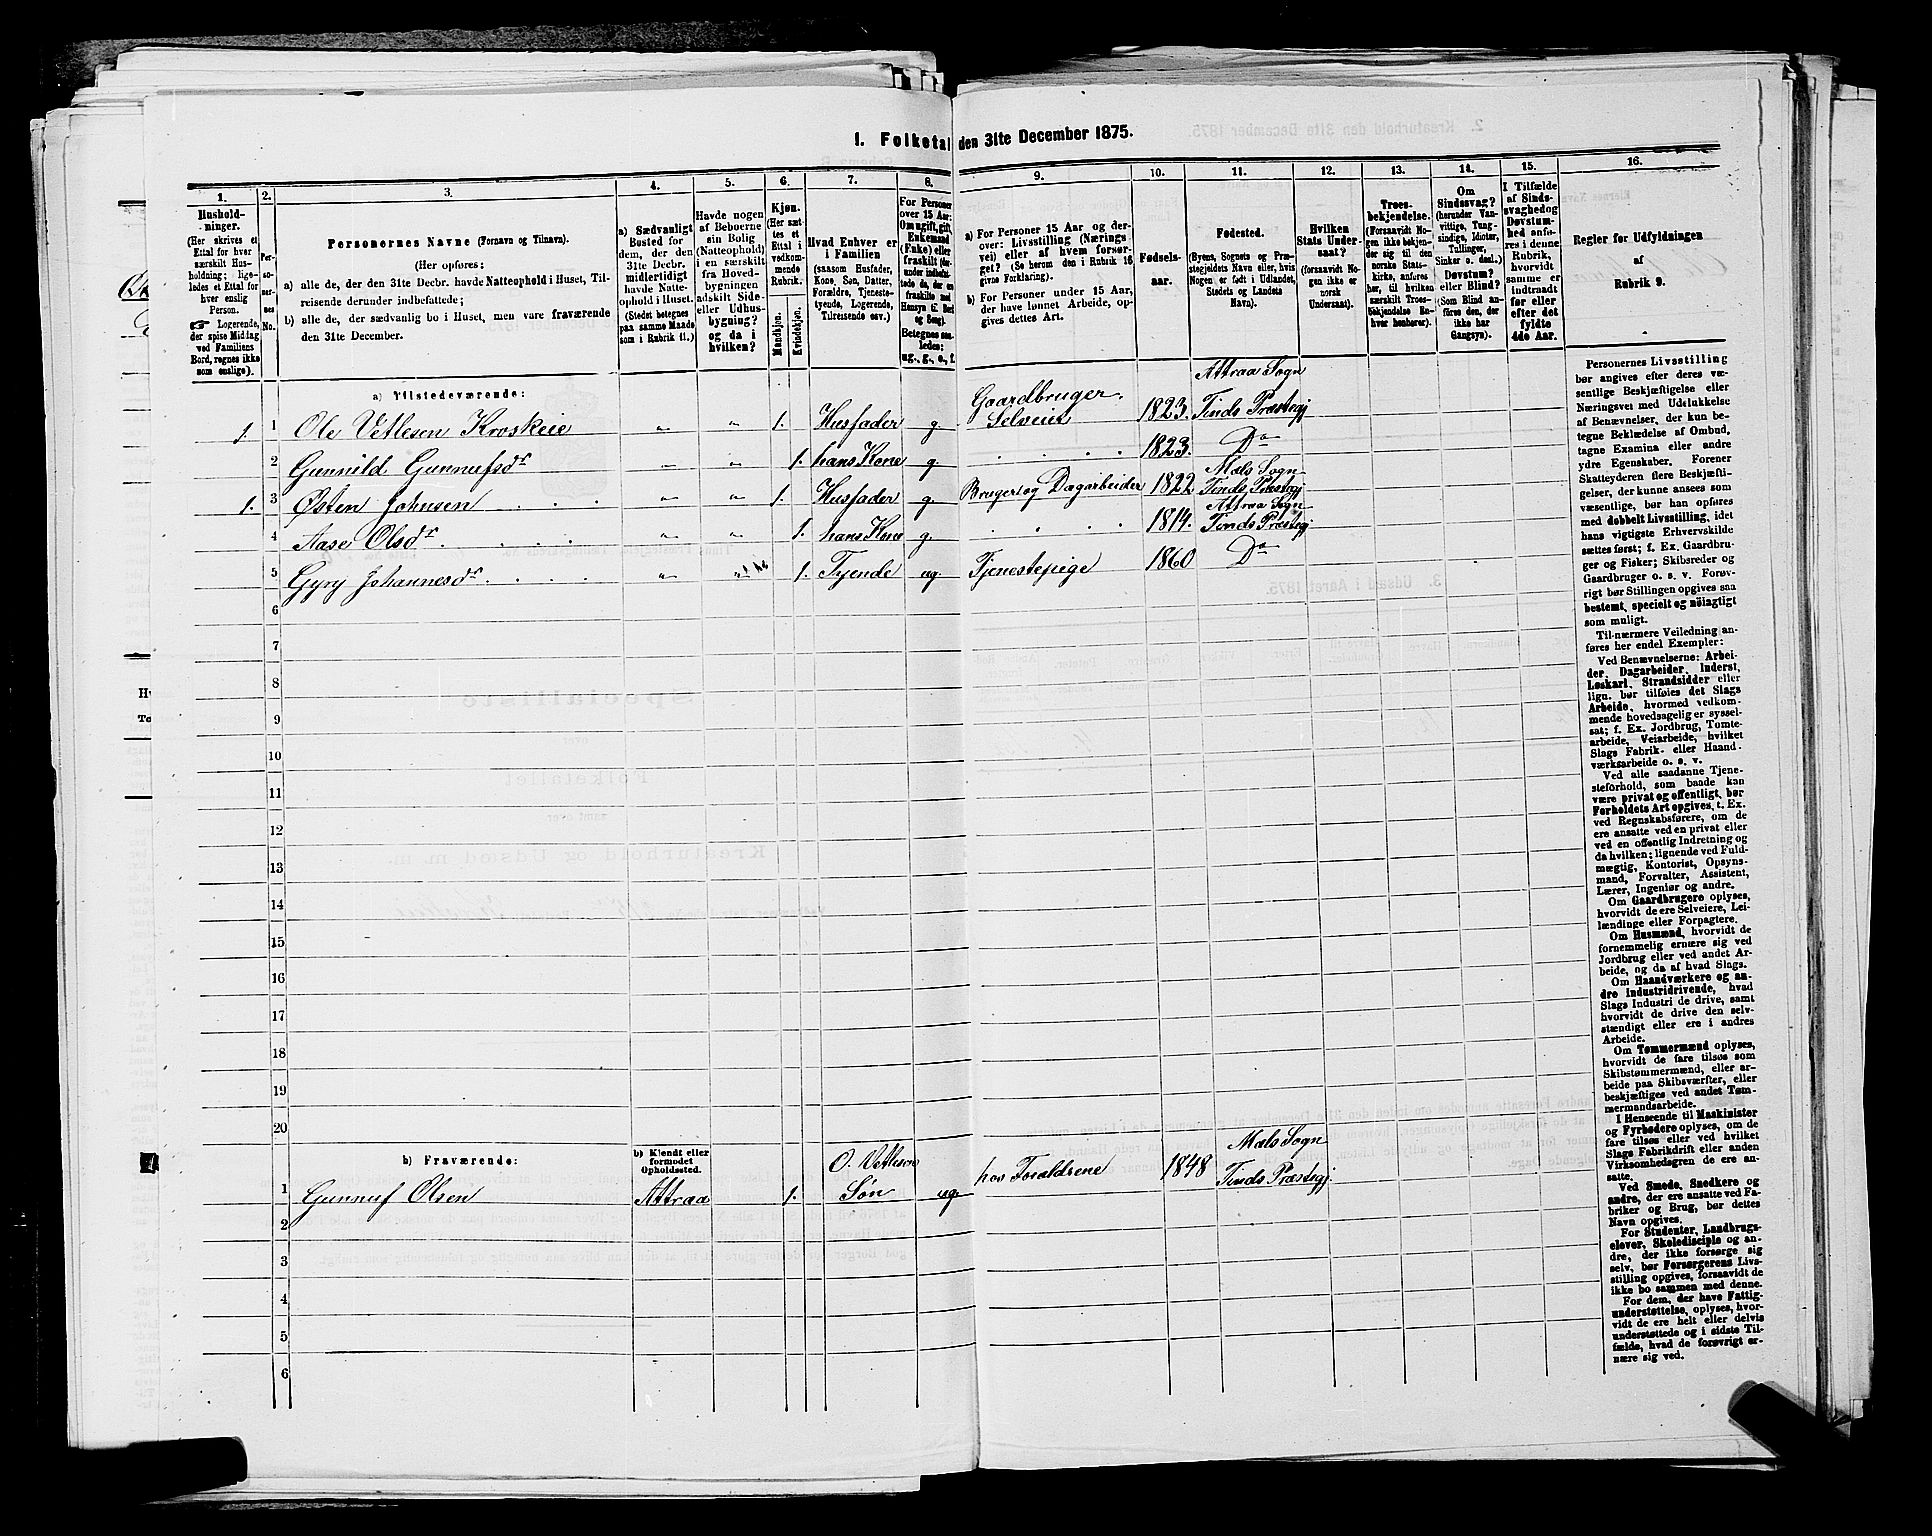 1. Folketal den 31te December 1875.
1. 2. 3. 4. 5. 6. 7. 8. 9. 10. 11. 12. 13. 14. 15. 16.
Hushold-
ninger.
(Her skrives et
Ettal for hver
særskilt Hus-
holdning; lige-
ledes et Ettal for
hver enslig
Person.
☞ Logerende,
der spise Middag
ved Familiens
Bord, regnes ikke
som enslige).
Per-
so-
ner-
nes
No.
Personernes Navne (Fornavn og Tilnavn).
(Her opføres:
a) alle de, der den 31te Decbr. havde Natteophold i Huset, Til-
reisende derunder indbefattede;
b) alle de, der sædvanlig bo i Huset, men vare fraværende
den 31te December.
a) Sædvanligt
Bosted for
dem, der den
31te Decbr.
midlertidigt
havde Natte-
ophold i Huset.
(Stedet betegnes
paa samme Maade
som i Rubrik 11.)
Havde nogen
af Beboerne
sin Bolig
(Natteophold)
i en særskilt
fra Hoved-
bygningen
adskilt Side-
eller Udhus-
bygning?
og da i
hvilken?
Kjøn.
(Her sæt-
tes et
Ettal i
vedkom-
mende
Rubrik.)
Mandkjøn.
Kvindekjøn.
Hvad Enhver er
i Familien
(saasom Husfader,
Kone, Søn, Datter,
Forældre, Tjeneste-
tyende, Logerende,
Tilreisende osv.)
For Personer
over 15 Aar:
Om ugift, gift,
Enkemand
(Enke) eller
fraskilt
Betegnes saa-
ledes:
ug., g., e., f.
a) For Personer 15 Aar og der-
over: Livsstilling (Nærings
vei) eller af hvem forsør-
get? (Se herom den i Rubrik 16
givne Forklaring).
b) For Personer under 15 Aar,
der have lønnet Arbeide, op-
gives dettes Art.
Fødsels-
aar.
Fødested.
(Byens, Sognets og Præ-
stegjeldets Navn eller, hvis
Nogen er født i Udlandet,
Stedets og Landets
Navn).
Hvilken
Stats Under-
saat?
(forsaavidt No-
gen ikke er
norsk
Undersaat).
Troes-
bekjendelse.
(Forsaavidt No-
gen ikke bekjen-
der sig til den
norske Stats-
kirke, anføres
her, til hvilken
særskilt Troes-
bekjendelse En-
hver henhører).
Om
Sindssvag?
(herunder Van-
vittige, Tung-
sindige, Idioter,
Tullinger,
Sinker o. desl.)
Døvstum?
eller Blind?
(Som Blind an-
føres den, der
ikke har
Gangsyn).
I Tilfælde
af Sinds-
svaghed og
Døvstum-
hed anfø-
res i denne
Rubrik,
hvorvidt
samme er
indtraadt
før eller
efter det
fyldte
4de Aar.
Regler for Udfyldningen
af
Rubrik 9.
a) Tilstedeværende:
Attraa Sogn
1. 1 Ole Vetlesen Kroskeie " " 1. Husfader g. Gaardbruger, Selveier 1823. Tinds Præstegj
2 Gunnild Gunnufsdr " " 1. hans Kone g. 1823. Do
Mæls Sogn
1. 3 Østen Johnsen " " 1. Husfader g. Bruger og Dagarbeider 1822 Tinds Præstegj
Attraa Sogn
4 Aase Olsdr 1. hans Kone g. 1814. Tinds Præstegj
5 Gyry Johannesdr " " 1. Tyende ug. Tjenestepige 1860 Do
6
7
8
9
10
11
12
13
14
15
16
17
18
19
20
b) Fraværende:
b) Kjendt eller
formodet
Opholdssted.
O. Vetlesens
Mæls Sogn
1 Gunnuf Olsen Attraa 1. Søn ug. hos Foraldrene 1848 Tinds Præstegj.
2
3
4
5
6
Personernes Livsstilling
bør angives efter deres væ-
sentlige Beskjæftigelse eller
Næringsvei med Udelukkelse
af Benævnelser, der kun be-
tegne Beklædelse af Ombud,
tagne Examina eller andre
ydre Egenskaber. Forener
Skatteyderen flere Beskjæfti-
gelser, der kunne ansees som
væsentlige, bør han opføres
med dobbelt Livsstilling, idet
hans vigtigste Erhvervskilde
sættes først; f. Ex. Gaardbru-
ger og Fisker; Skibsreder og
Gaardbruger o. s. v. Forøv-
rigt bør Stillingen opgives saa
bestemt, specielt og nöiagtigt
som muligt.
Til nærmere Veiledning an-
føres her endel Exempler:
Ved Benævnelserne: Arbei-
der, Dagarbeider, Inderst,
Løskarl, Strandsidder eller
lign. bør tilføies det Slags
Arbeide, hvormed vedkom-
mende hovedsagelig er syssel-
sat; f. Ex. Jordbrug, Tomte-
arbeide, Veiarbeide, hvilket
Slags Fabrik- eller Haand-
værksarbeide o. s. v.
Ved alle saadanne Tjene-
steforhold, som baade kan
være privat og offentligt, bør
Forholdets Art opgives, t. Ex.
ved Regnskabsførere, om de
ere ansatte ved en privat eller
ved en offentlig Indretning og
da hvilken; lignende ved Fuld-
mægtig, Kontorist, Opsyns-
mand, Forvalter, Assistent,
Lærer, Ingeniør og andre.
Om Gaardbrugere oplyses,
hvorvidt de ere Selveiere, Lei-
lændinge eller Forpagtere.
Om Husmænd, hvorvidt de
fornemmelig ernære sig ved
Jordbrug eller ved andet Ar-
beide, og da af hvad Slags.
Om Haandværkere og an-
dre Industridrivende, hvad
Slags Industri de drive, samt
hvorvidt de drive den selv-
stændigt eller ere i andres
Arbeide.
Om Tømmermænd oplyses,
hvorvidt de fare tilsøs som
Skibstømmermænd, eller ar-
beide paa Skibsværfter, eller
beskjæftiges ved andet Tøm-
mermandsarbeide.
I Henseende til Maskinister
og Fyrbødere oplyses, om de
fare tilsøs eller ved hvilket
Slags Fabrikdrift eller anden
Virksomhedsgren de ere an-
satte.
Ved Smede, Snedkere og
andre, der ere ansatte ved Fa-
briker og Brug, bør dettes
Navn opgives.
For Studenter, Landbrugs-
elever, Skoledisciple og an-
dre, der ikke forsørge sig
selv, bør Forsørgerens Livs-
stilling opgives, forsaavidt de
ikke bo sammen med denne.
For dem, der have Fattig-
understøttelse, oplyses, hvor-
vidt de ere helt eller delvis
understøttede og i sidste Til-
fælde, hvad de forøvrigt er-
nære sig ved.